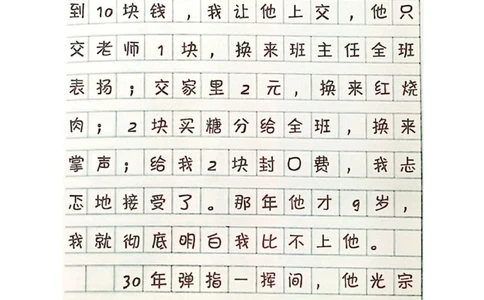 到10块钱,我让他上交,他只
交老师1块,换来班主任全班
表扬;交家里2元,换来红烧
肉;2块买糖分给全班,换来
掌声;给我2块封口费,我忐
忑地接受了。那年他才9岁,
我就彻底明白我比不上他。
30年弹指一挥间,他光宗